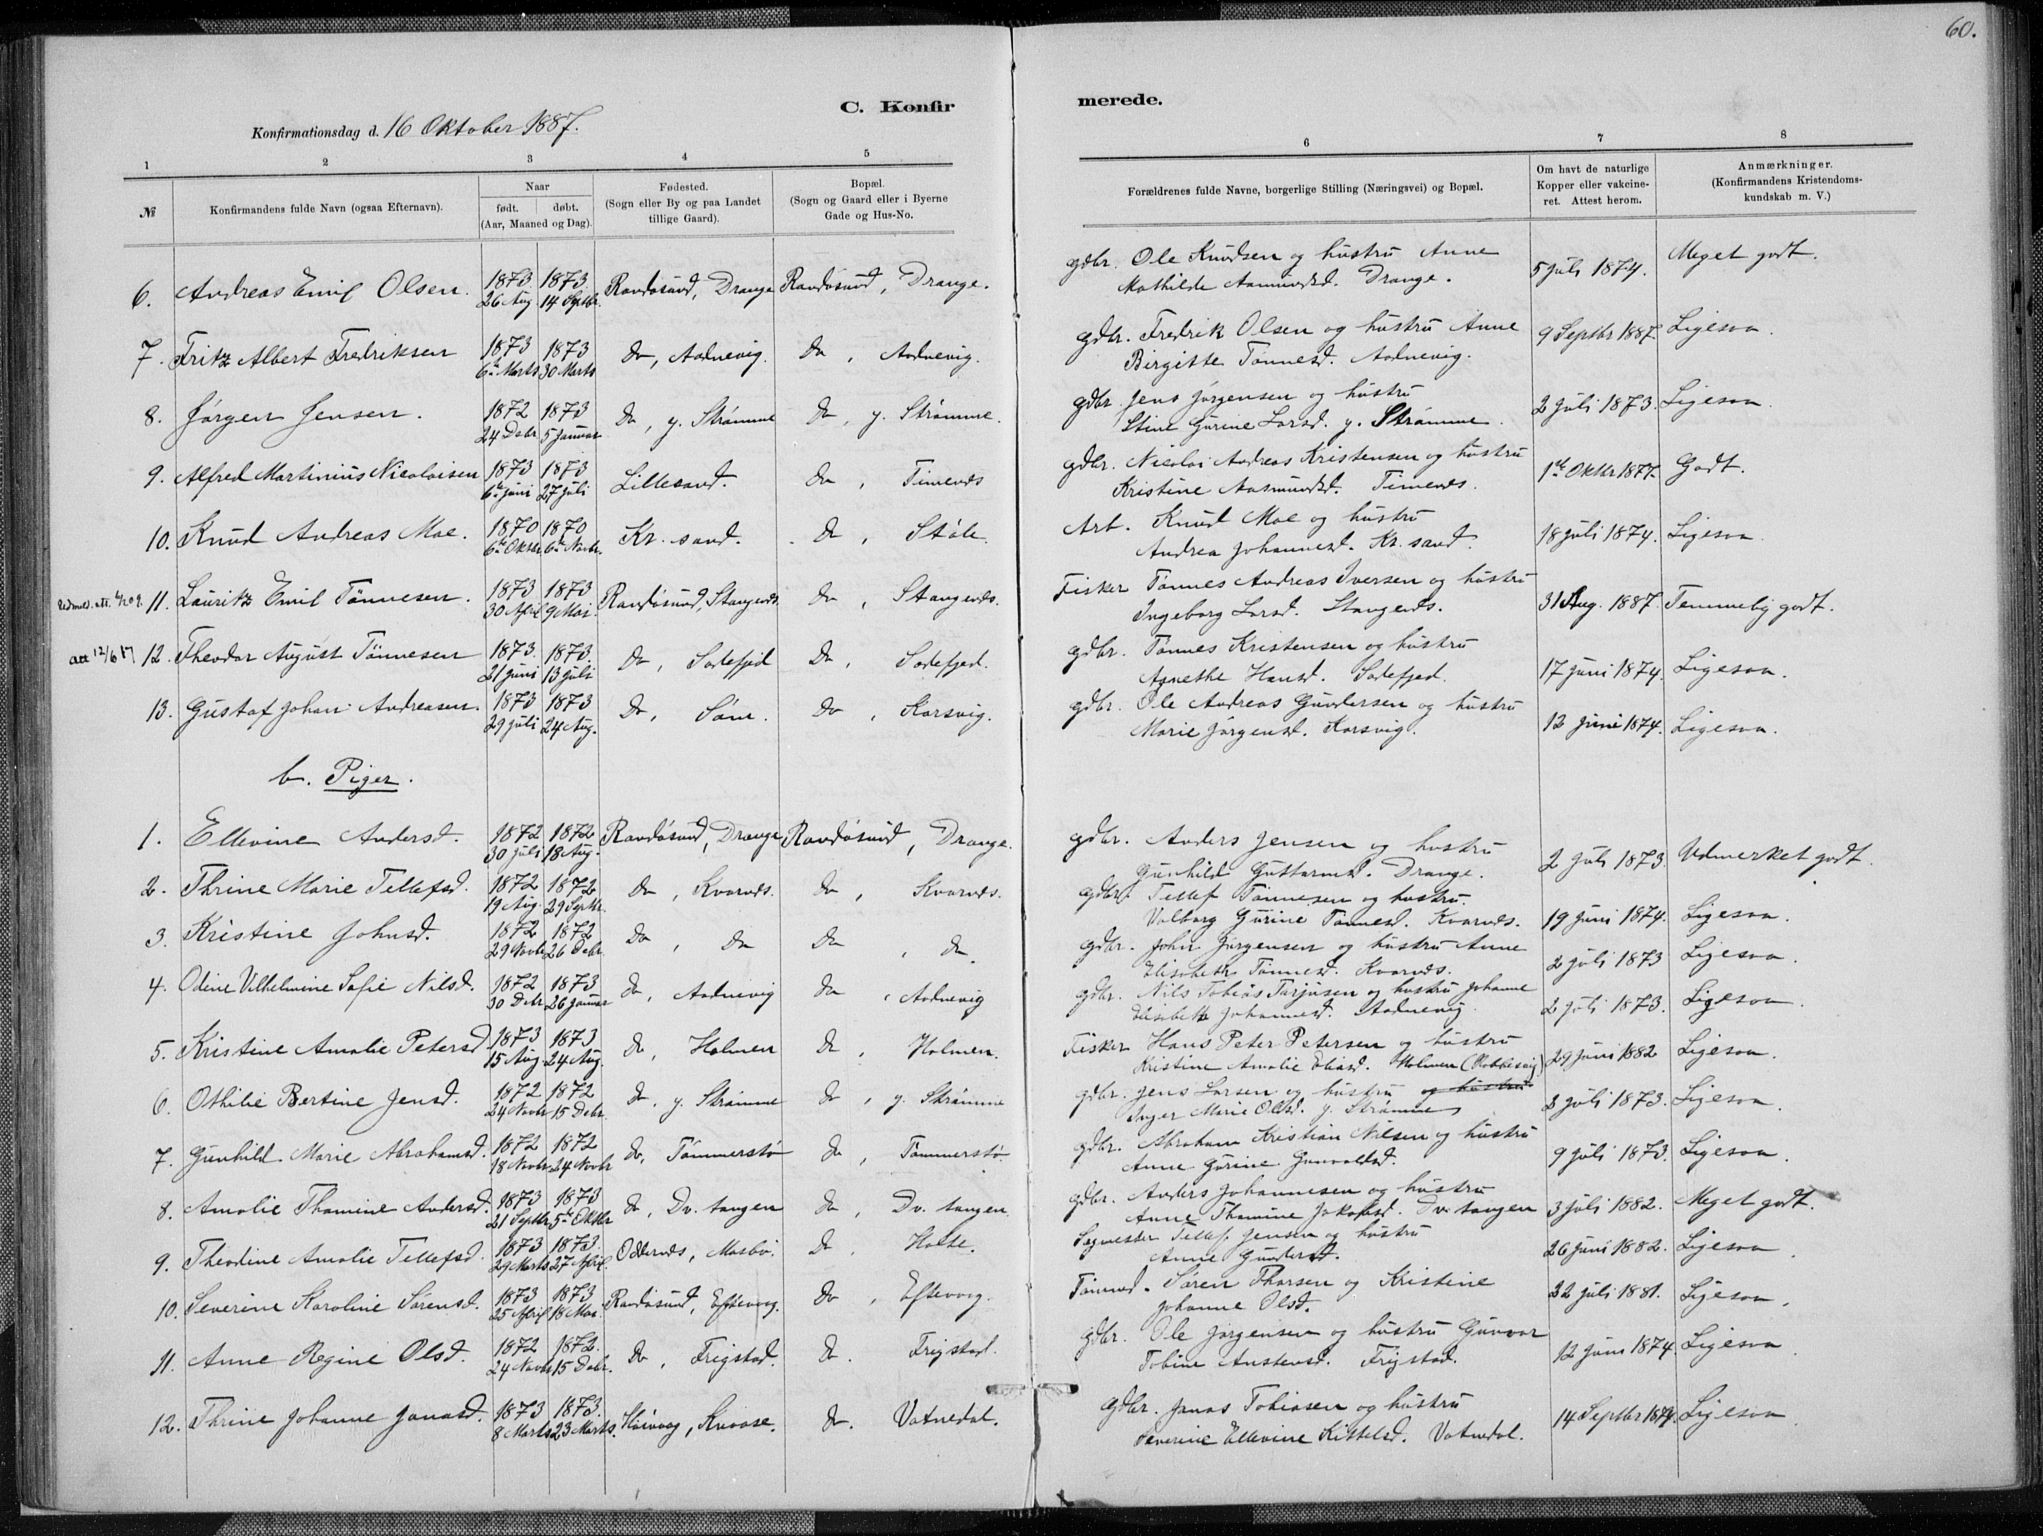 60.
C. Konfir merede.
Konfirmationsdag d. 16 Oktober 1887.
1 2 3 4 5 6 7 8
№
Konfirmandens fulde Navn (ogsaa Efternavn).
Naar
født. døbt.
(Aar, Maaned og Dag).
Fødested.
(Sogn eller By og paa Landet
tillige Gaard).
Bopæl.
(Sogn og Gaard eller i Byerne
Gade og Hus-No.
Forældrenes fulde Navne, borgerlige Stilling (Næringsvei) og Bopæl.
Om havt de naturlige
Kopper eller vakcine-
ret. Attest herom.
Anmærkninger.
(Konfirmandens Kristendoms-
kundskab m. V.)
6. Andreas Emil Olsen. 1873 26 Aug. 1873 14 Septbr. Randøsund, Drange Randøsund, Drange. gdbr. Ole Knudsen og hustru Anne
Mathilde Aanundsd. Drange. 5 juli 1874. Meget godt.
7. Fritz Albert Fredriksen 1873 6te Marts 1873 30 Marts Do, Aodnevig. Do, Aodnevig. gdbr. Fredrik Olsen og hustru Anne
Birgitte Tønnesd. Aodnevig. 9 Septbr 1887. Ligesaa.
8. Jørgen Jensen. 1872 24 Debr. 1873 5 Januar Do, y. Strømme Do, y. Strømme. gdbr. Jens Jørgensen og hustru
Stine Gurine Larsd. y. Strømme. 2 juli 1873. Ligesaa.
9. Alfred Martinius Nicolaisen 1873 6te juni 1873 27 juli Lillesand. Do, Timenes gdbr. Nicolai Andreas Kristensen og hustru
Kristine Aasmundsd. Timenes. 1ste Oktbr 1877. Godt.
10. Knud Andreas Moe. 1870 6te Oktbr. 1870 6te Novbr. Kr. sand. Do, Støle. Arb. Knud Moe og hustru
Andrea Johannesd. Kr. sand. 18 juli 1874. Ligesaa.
11. Lauritz Emil Tønnesen. 1873 30 April 1873 9 Mai. Randøsund, Stangenes. Do, Stangenes. Fisker Tønnes Andreas Iversen og hustru
Ingeborg Larsd. Stangenes. 31 Aug. 1887. Temmelig godt.
att 12/6 17 12. Theodor August Tønnesen 1873. 21 juni 1873 13 juli Do, Sodefjed Do, Sodefjed. gdbr. Tønnes Kristensen og hustru
Agnethe Hansd. Sodefjed. 17 juni 1874. Ligesaa.
13. Gustaf Johan Andreasen. 1873 29 juli 1873 24 Aug. Do, Søm. Do, Korsvig. gdbr. Ole Andreas Gundersen og hustru
Marie Jørgensd. Korsvig. 12 juni 1874. Ligesaa.
b. Piger.
1. Ellevine Andersd. 1872 30 juli 1872 18 Aug. Randøsund, Drange Randøsund, Drange. gdbr. Anders Jensen og hustru
Gunhild Guttormsd. Drange. 2 juli 1873. Udmerket godt.
2. Thrine Marie Tellefsd. 1872 19 Aug. 1872 29 Septbr. Do, Kvarnes. Do, Kvarnes. gdbr. Tellef Tønnesen og hustru
Valborg Gurine Tønnesd. Kvarnes. 19 juni 1874. Ligesaa.
3. Kristine Johnsd. 1872 29 Novbr 1872 26 Debr. Do, Do Do, do. gdbr. John Jørgensen og hustru Anne
Elisabeth Tønnesd. Kvarnes. 2 juli 1873 Ligesaa.
4. Odine Vilhelmine Sofie Nilsd. 1872 30 Debr. 1873 26 Januar Do, Aodnevig Do, Aodnevig gdbr. Nils Tobias Tarjusen og hustru Johanne
Elisabeth Johannesd. Aodnevig. 2 juli 1873. Ligesaa.
5. Kristine Amalie Petersd. 1873 15 Aug. 1873 24 Aug. Do, Holmen Do, Holmen. Fisker Hans Peter Petersen og hustru
Kristine Amalie Eliasd. Holmen (Kobbevig) 29 juni 1882 Ligesaa.
6. Othilie Bertine Jensd. 1872 24 Novbr 1872 15 Debr. Do, y. Strømme Do, y. Strømme gdbr. Jens Larsen og hustru og hustru
Inger Marie Olsd. y. Strømme 2 juli 1873. Ligesaa.
7. Gunhild Marie Abrahamsd. 1872 18 Novbr. 1872 24 Novbr Do, Tømmerstø Do, Tømmerstø. gdbr. Abraham Kristian Nilsen og hustru
Anne Gurine Gunvaldsd. 9 juli 1873. Ligesaa.
8. Amalie Thomine Andersd. 1873 21 Septbr 1873 5te Oktbr Do, Dv. tangen Do, Dv. tangen. gdbr. Anders Johannesen og hustru
Anne Thomine Jakobsd. Dv. tangen 3 juli 1882. Meget godt.
9. Theodine Amalie Tellefsd. 1873 29 Marts 1873. 27 April. Oddernes, Mosbø. Do, Holte. Sagmester Tellef Jensen og hustru
Anne Gundersd. 26 juni 1882. Ligesaa.
10. Severine Karoline Sørensd. 1873 25 April 1873 18 Mai. Randøsund, Eftevog. Do, Eftevog. Tømmd. Søren Thorsen og Kristine
Johanne Olsd. 22 juli 1881. Ligesaa.
11. Anne Regine Olsd. 1872 24 Novbr 1872. 15 Debr. Do, Frigstad. Do. Frigstad. gdbr. Ole Jørgensen og hustru Gunvor
Tobine Anstensd. Frigstad. 12 juni 1874. Ligesaa
12. Thrine Johanne Jonasd. 1873 8 Marts 1873. 23 Marts. Høivaag, Kvaase. Do. Vatnedal. gdbr. Jonas Tobiasen og hustru
Severine Ellevine Kittelsd. Vatnedal. 14 Septbr 1874. Ligesaa